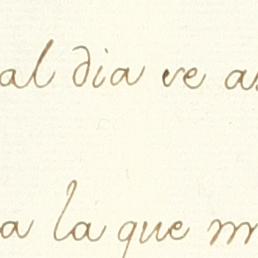 al dia ve a
a la que m